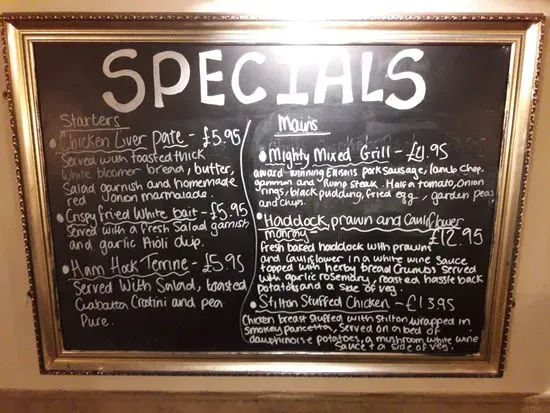 SPECIALS
Starters
Chicken Liver pate - £5.95
Served with toasted thick
white bloomer bread, butter,
Salad garnish and homemade
red onion marmalade.
Crispy fried White bait - £5.95
Served with a fresh Salad garnish
and garlic Aioli dip.
Ham Hock Terrine - £5.95
Served With Salad, toasted
Ciabatta Crostini and pea
Pure.
Mains
Mighty Mixed Grill - £14.95
award winning Emsons pork sausage, lamb Chop,
gammon and Rump steak. Half a tomato, onion
rings, black pudding, fried egg, garden peas
and chips.
Haddock, prawn and Cauliflower
monray £12.95
fresh based haddock with prawn
and Cauliflower in a white wine Sauce
topped with herby bread Crumbs Served
with garlic rosemary, roasted hassle back
potatoes and a side of veg.
Stilton Stuffed Chicken - £13.95
Chicken breast stuffed with stilton wrapped in
smokey pancetta, Served on a bed of
dauphinoise potatoes, a mushroom white wine
Sauce + a side of veg.